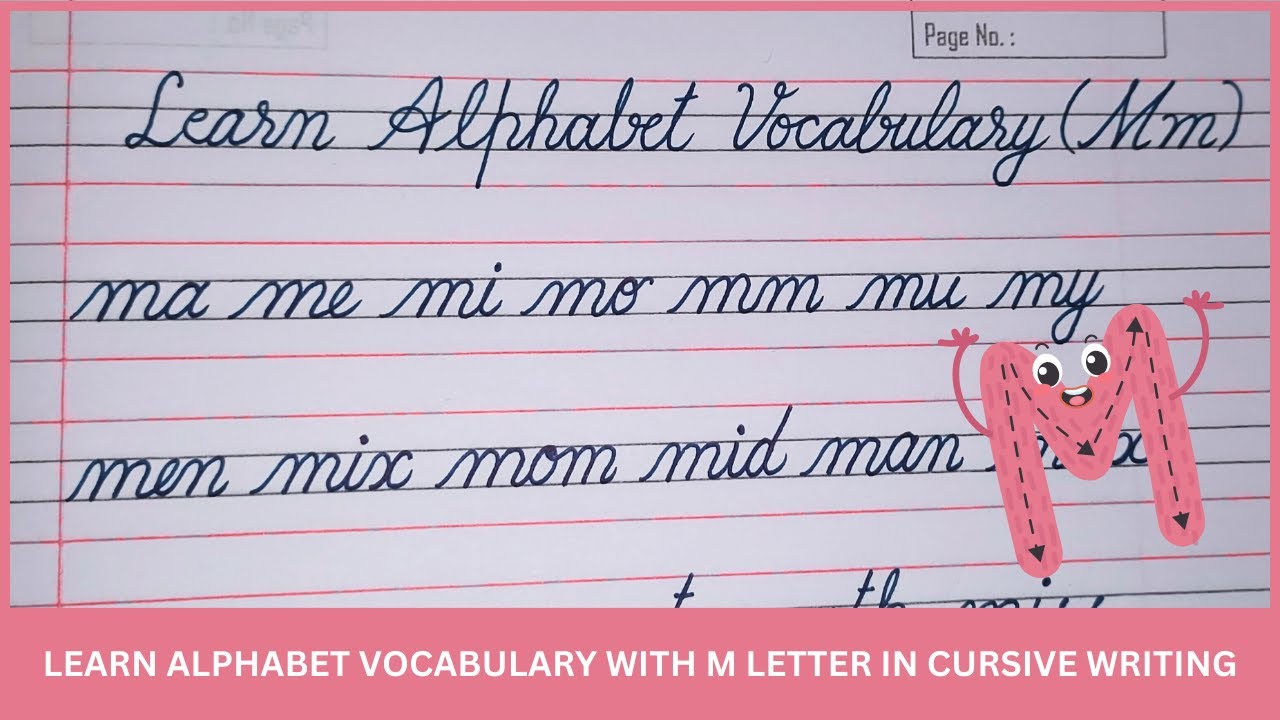 Page No.:
Learn Alphabet Vocabulary (Mm)
ma me mi mo mm mu my
men mix mom mid man
LEARN ALPHABET VOCABULARY WITH M LETTER IN CURSIVE WRITING